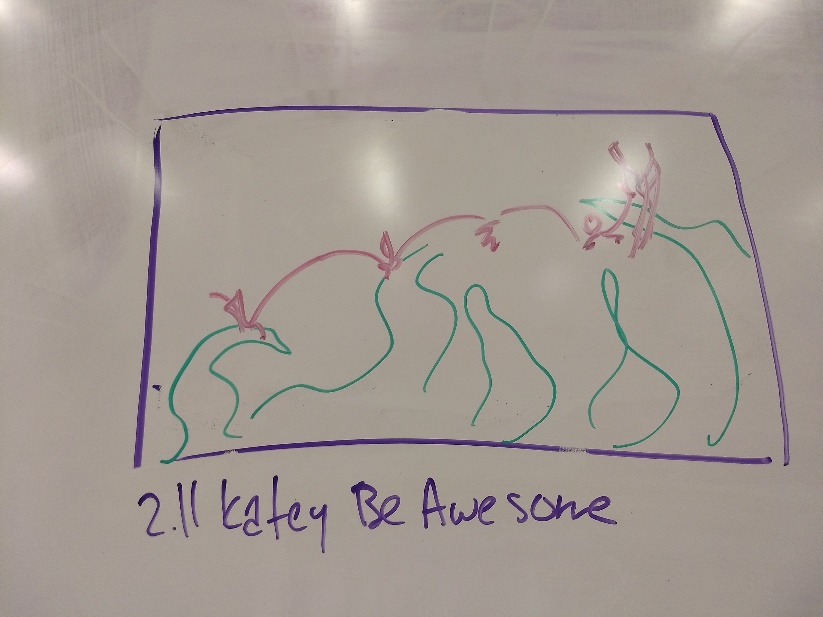 2.11 Katey Be Awesome